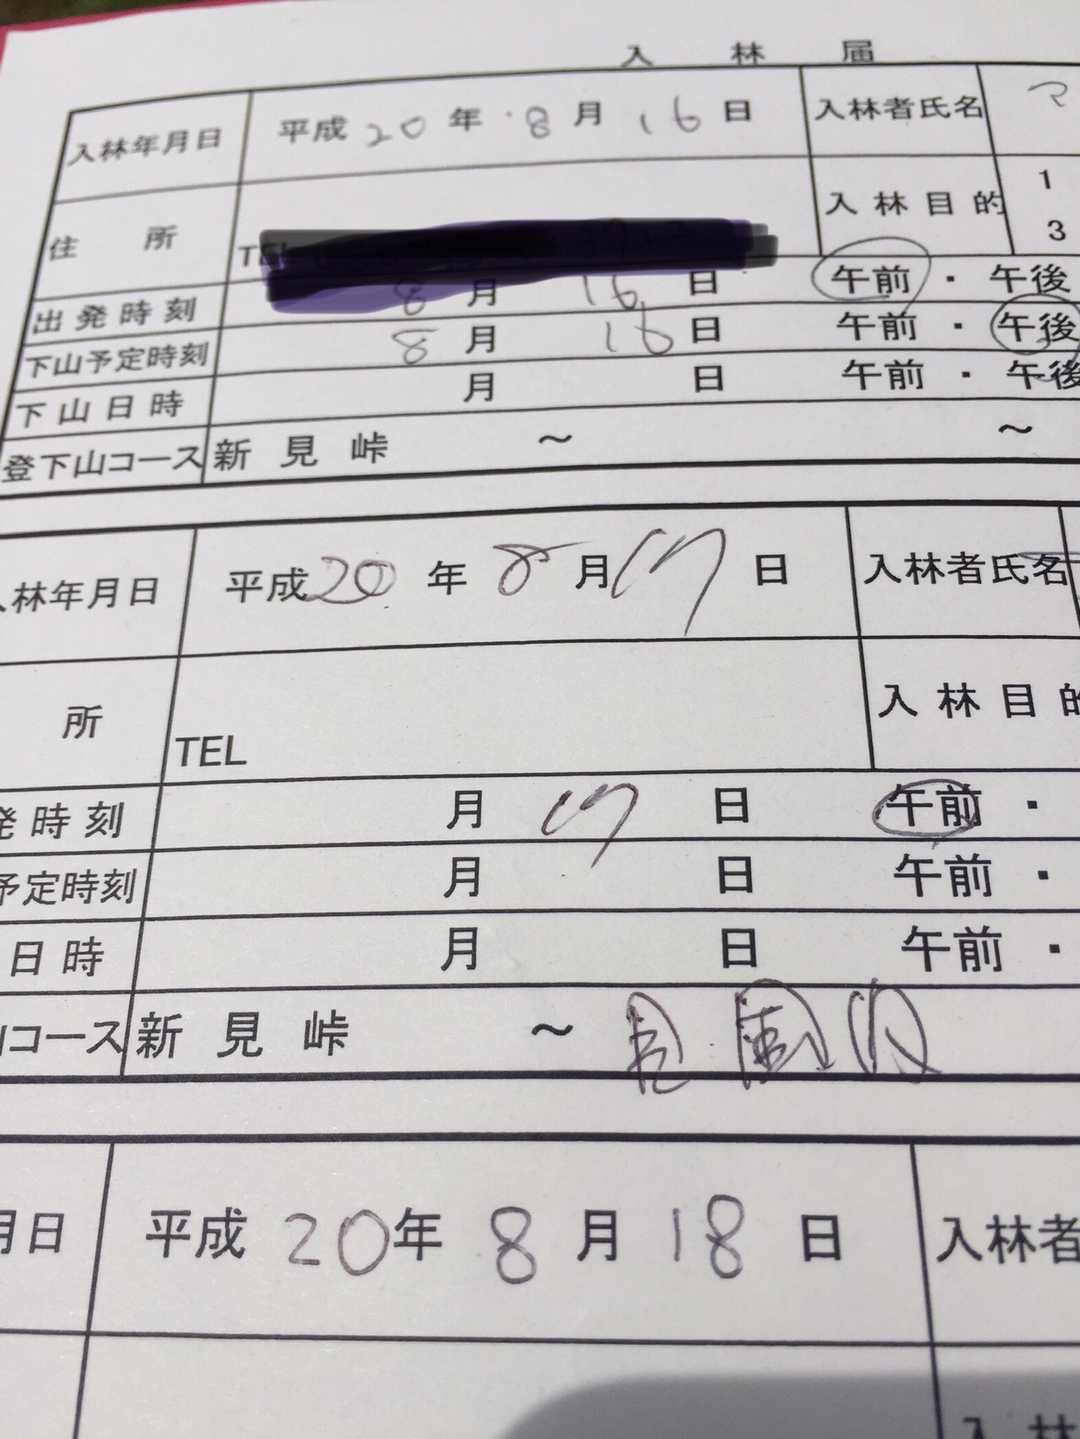 入林届
入林年月日 平成 20 年 8 月 16 日 入林者氏名 マ
住所 入林目的 1
3
出発時刻 8 月 16 日 午前・午後
下山予定時刻 8 月 16 日 午前・午後
下山日時 月 日 午前・午後
登下山コース 新見峠 ～ ～
入林年月日 平成 20 年 8 月 17 日 入林者氏名
所 TEL 入林目的
発時刻 月 17 日 午前・
予定時刻 月 日 午前・
日時 月 日 午前・
山コース 新見峠 ～
月日 平成 20 年 8 月 18 日 入林者
入林